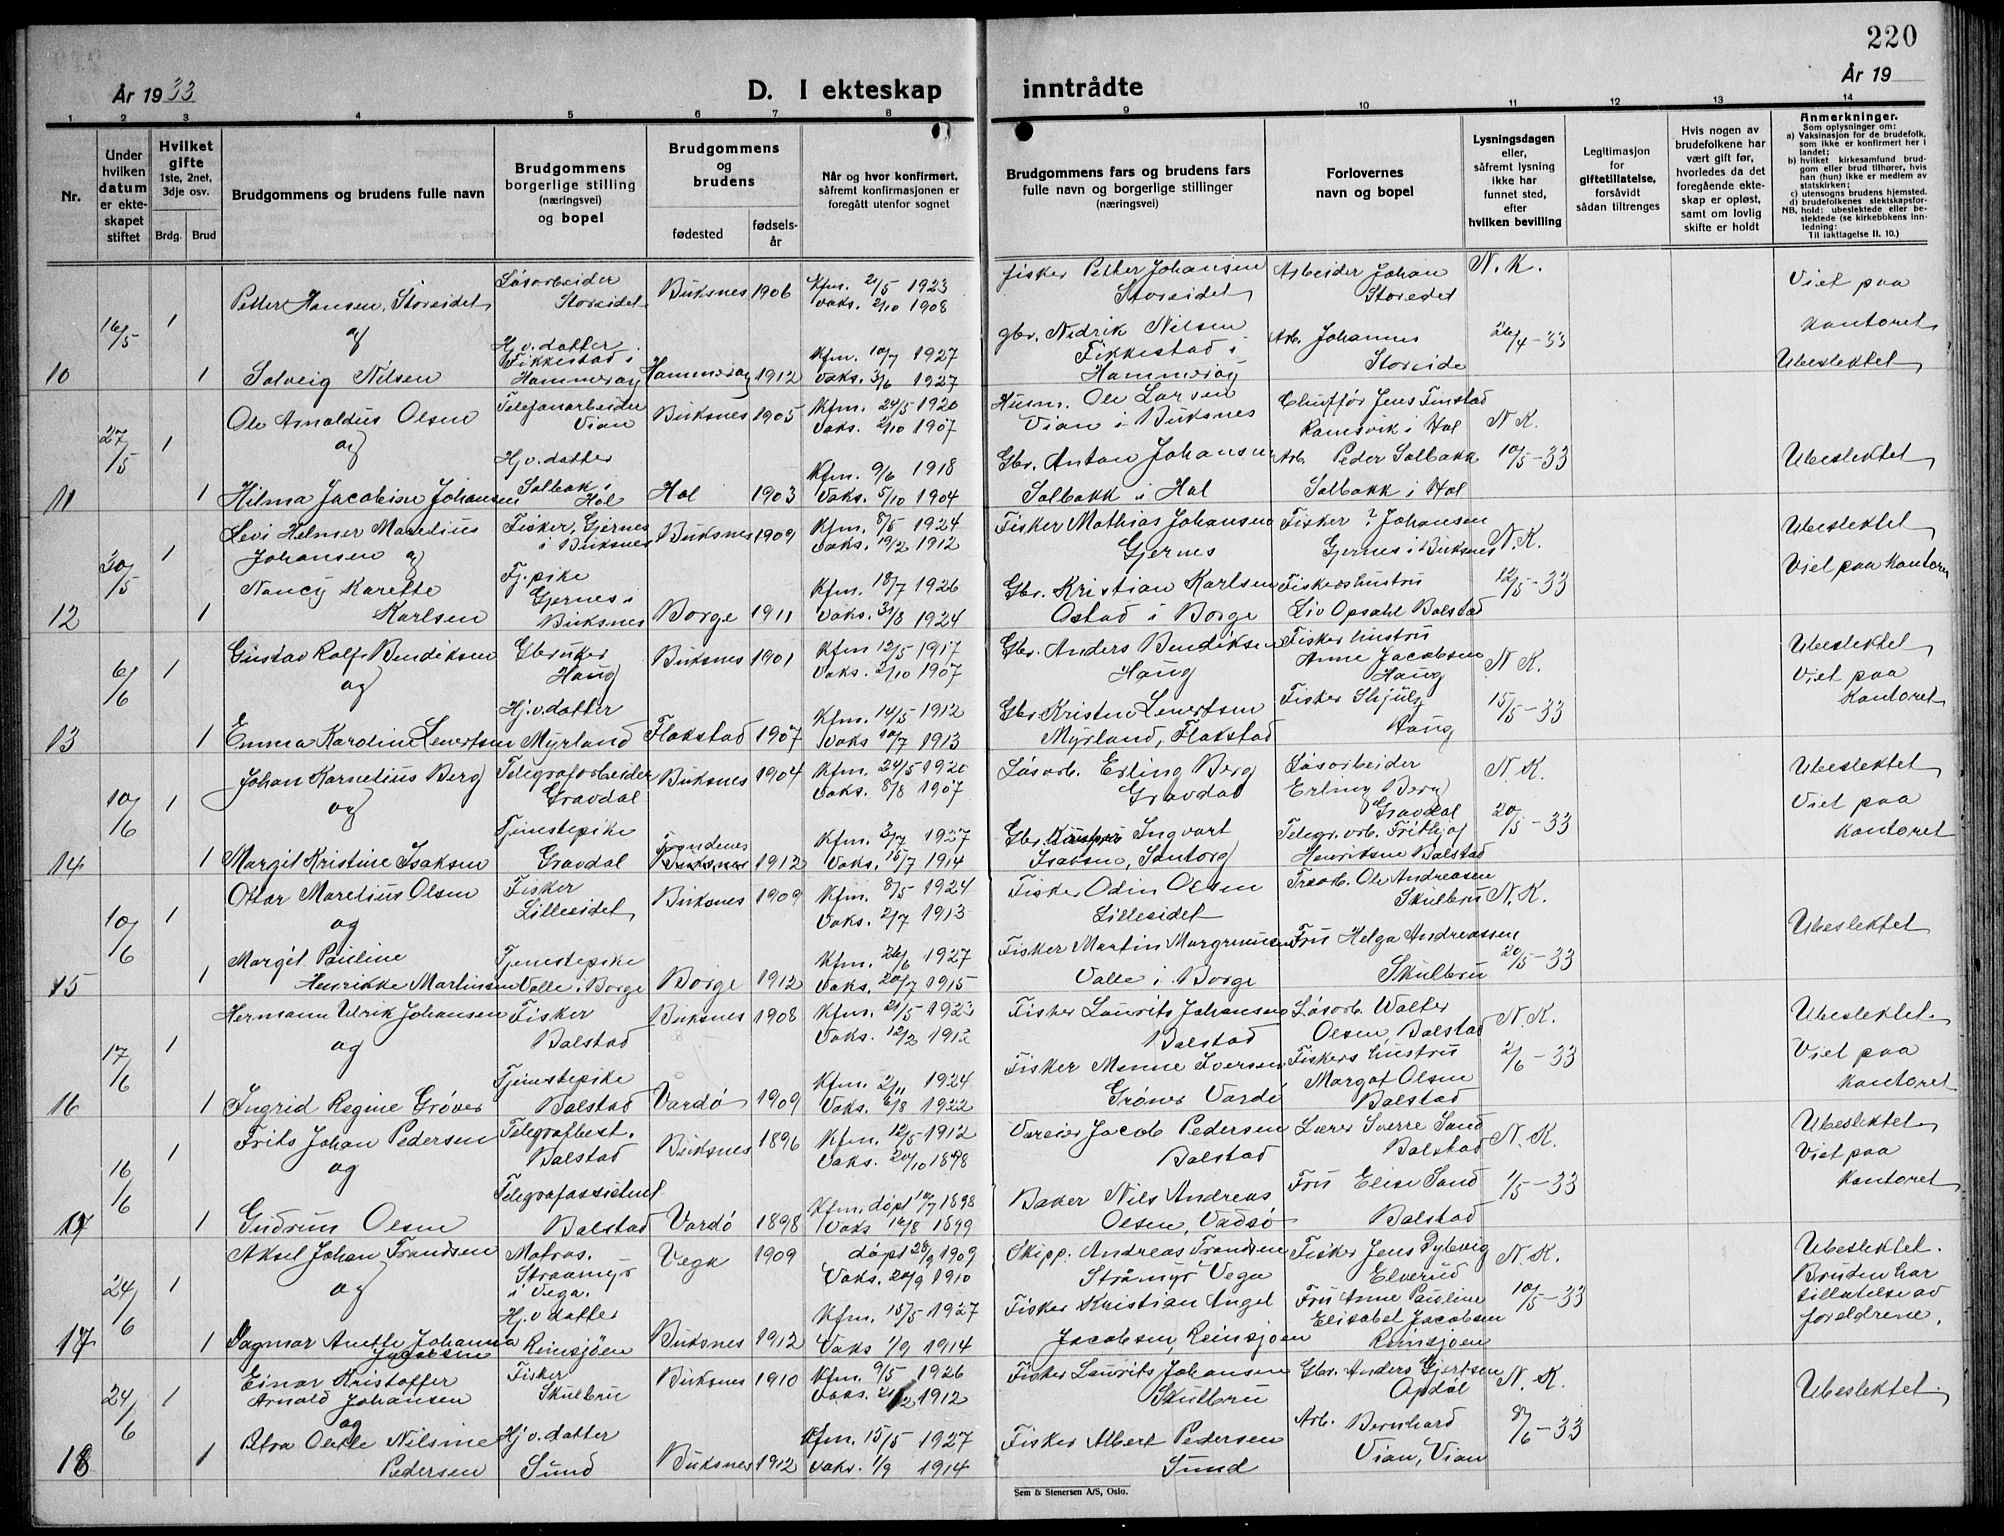 220
År 1933
D. I ekteskap inntrådte
År 19
1 2 3 4 5 6 7 8 9 10 11 12 13 14
Nr.
Under hvilken datum er ekte-skapet stiftet
Hvilket gifte 1ste, 2net, 3dje osv.
Brdg. Brud
Brudgommens og brudens fulle navn
Brudgommens borgerlige stilling (næringsvei) og bopel
Brudgommens og brudens
fødested
fødsels-år
Når og hvor konfirmert, såfremt konfirmasjonen er foregått utenfor sognet
Brudgommens fars og brudens fars fulle navn og borgerlige stillinger (næringsvei)
Forlovernes navn og bopel
Lysningsdagen eller, såfremt lysning ikke har funnet sted, efter hvilken bevilling
Legitimasjon for giftetillatelse, forsåvidt sådan tiltrenges
Hvis nogen av brudefolkene har vært gift før, hvorledes da det foregående ekte-skap er opløst, samt om lovlig skifte er holdt
Anmerkninger.
Som oplysninger om:
a) Vaksinasjon for de brudefolk, som ikke er konfirmert her i landet;
b) hvilket kirkesamfund brud-gom eller brud tilhører, hvis han (hun) ikke er medlem av statskirken;
c) utensogns brudens hjemsted.
d) brudefolkenes slektskapsfor-
NB. hold: ubeslektede eller be-slektede (se kirkebbkens inn-ledning:
Til iakttagelse II. 10.)
10 16/5 1 Petter Hansen, Storeidet Løsarbeider Storeidet Buksnes 1906 Kfm. 21/5 1923 Vaks. 2/10 1908 fisker Petter Johansen Storeidet Arbeider Johan Storeidet N. K. Viet paa kontoret
og
1 Solveig Nilsen Hj. v. datter Fikkestad i Hammerøy Hammerøy 1912 Kfm. 10/7 1927 Vaks. 3/6 1927 gbr. Nedrik Nilsen Fikkestad i Hammerøy Arb. Johannes Storeide 26/4-33 Ubeslektet
11 27/5 1 Ole Arnoldus Olsen Telefonarbeider Vian Buksnes 1905 Kfm. 24/5 1920 Vaks. 2/10 1907 Husm. Ole Larsen Vian i Buksnes Chuffør Jens Finstad Ramsvik i Hol N. K.
og
1 Hilma Jacobine Johansen Hj. v. datter Solbak i Hol Hol 1903 Kfm. 9/6 1918 Vaks. 5/10 1904 Gbr. Anton Johansen Solbakk i Hol Arb. Peder Solbakk Solbakk i Hol 10/5-33 Ubeslektet
12 20/5 1 Levi Helmer Marelius Johansen og Fisker, Gjernes i Buksnes Buksnes 1909 Kfm. 8/5 1924 Vaks. 19/2 1912 Fisker Mathias Johansen Gjernes Fisker ? Johansen Gjernes i Buksnes N. K. Ubeslektet
1 Nancy Karette Karlsen Tj. pike Gjernes i Buksnes Borge 1911 Kfm. 18/7 1926 Vaks. 31/8 1924 Gbr. Kristian Karlsen Ostad i Borge Fiskershustru Liv Opsahl Balstad 12/5-33 Viet paa kontoret
13 6/6 1 Gustav Rolf Bendiksen Gbruker Haug Buksnes 1901 Kfm 12/5 1917 Vaks. 2/10 1907 Gbr. Anders Bendiksen Haug Fisker hustru Anne Jacobsen Haug N. K. Ubeslektet
og
1 Emma Karoline Levertsen Hj. v. datter Myrland Flakstad 1907 Kfm. 14/5 1912 Vaks 10/7 1913 Gbr Kristen Levertsen Myrland, Flakstad Fisker Haug 15/5-33 Viet paa Kontoret
14 10/6 1 Johan Kornelius Berg Telegrafarbeider Gravdal Buksnes 1904 Kfm. 24/5 1920 Vaks. 8/8 1907 Løsarb. Erling Berg Gravdal Løsarbeider Erling Berg Gravdal N. K. Ubeslektet
og
1 Margit Kristine Isaksen Tjenestepike Gravdal Trondenes 1912 Kfm. 3/7 1927 Vaks. 15/7 1914 Gbr. Ingvart Isaksen, Santorg Telegr. arb. Frithjof Henriksen Balstad 20/5-33 Viet paa kontoret
15 10/6 1 Ottar Marelius Olsen Fisker Lilleeidet Buksnes 1909 Kfm. 8/5 1924 Vaks. 2/7 1913 Fisker Odin Olsen Lilleeidet Ole Andreasen Skulbru N. K. Ubeslektet
og
1 Margit Pauline Henrikke Martinsen Tjenestepike Valle i Borge Borge 1912 Kfm. 26/6 1927 Vaks. 20/7 1915 Fisker Martin Valle i Borge Fru Helga Andreassen Skulbru 20/5-33
16 17/6 1 Hermann Ulrik Johansen Fisker Balstad Buksnes 1908 Kfm. 21/5 1923 Vaks. 12/2 1912 Fisker Laurits Johansen Balstad Løsarb. Walter Olsen, Balstad N. K. Ubeslektet.
og
1 Ingrid Regine Grøver Tjenestepike Balstad Vardø 1909 Kfm. 2/11 1924 Vaks. 6/8 1922 Fisker Menne Iversen Grøner Vardø Fiskers hustru Margot Olsen Balstad 2/6-33 Viet paa kontoret
17 16/6 1 Frits Johan Pedersen Telegrafbest. Balstad Buksnes 1896 Kfm. 12/5 1912 Vaks. 20/10 1898 Jacob Pedersen Balstad Lærer Sverre Sand Balstad N. K. Ubeslektet
og
1 Gudrun Olsen Telegrafassistent Balstad Vardø 1898 Kfm. døpt 10/7 1898 Vaks 16/8 1899 Baker Nils Andreas Olsen, Vadsø Fru Elise Sand Balstad 1/5-33 Viet paa Kontoret
17 24/6 1 Aksel Johan Trandsen Matros. Straamyr i Vega. Vega 1909 døpt 26/9 1909 Vaks. 20/9 1910 Skipp. Andreas Trandsen Strømyr Vega Fisker Jens Dybvig Elverud N. K. Ubeslektet.
og
1 Dagmar Anette Johanna Jacobsen Hj. v. datter Reinsjøen Buksnes 1912 Kfm. 15/5 1927 Vaks 1/9 1914 Fisker Kristian Angel Jacobsen, Reinsjøen Fru Anne Pauline Elisabet Jacobsen Reinsjøen 10/5-33 Bruden har tillatelse av foreldrene.
18 24/6 1 Einar Kristoffer Arnold Johansen Fisker Skulbru Buksnes 1910 Kfm. 9/5 1926 Vaks. 1912 Fisker Laurits Johansen Skulbru Gbr. Anders Gjertsen Opdøl N. K. Ubeslektet
og
1 Petra Oleste Nilsine Pedersen Hj. v. datter Sund Buksnes 1912 Kfm. 15/5 1927 Vaks. 1/9 1914 Fisker Albert Pedersen Sund Arb. Bernhard Vian, Vian 8/6-33
Sem & Stenersen A/S, Oslo.